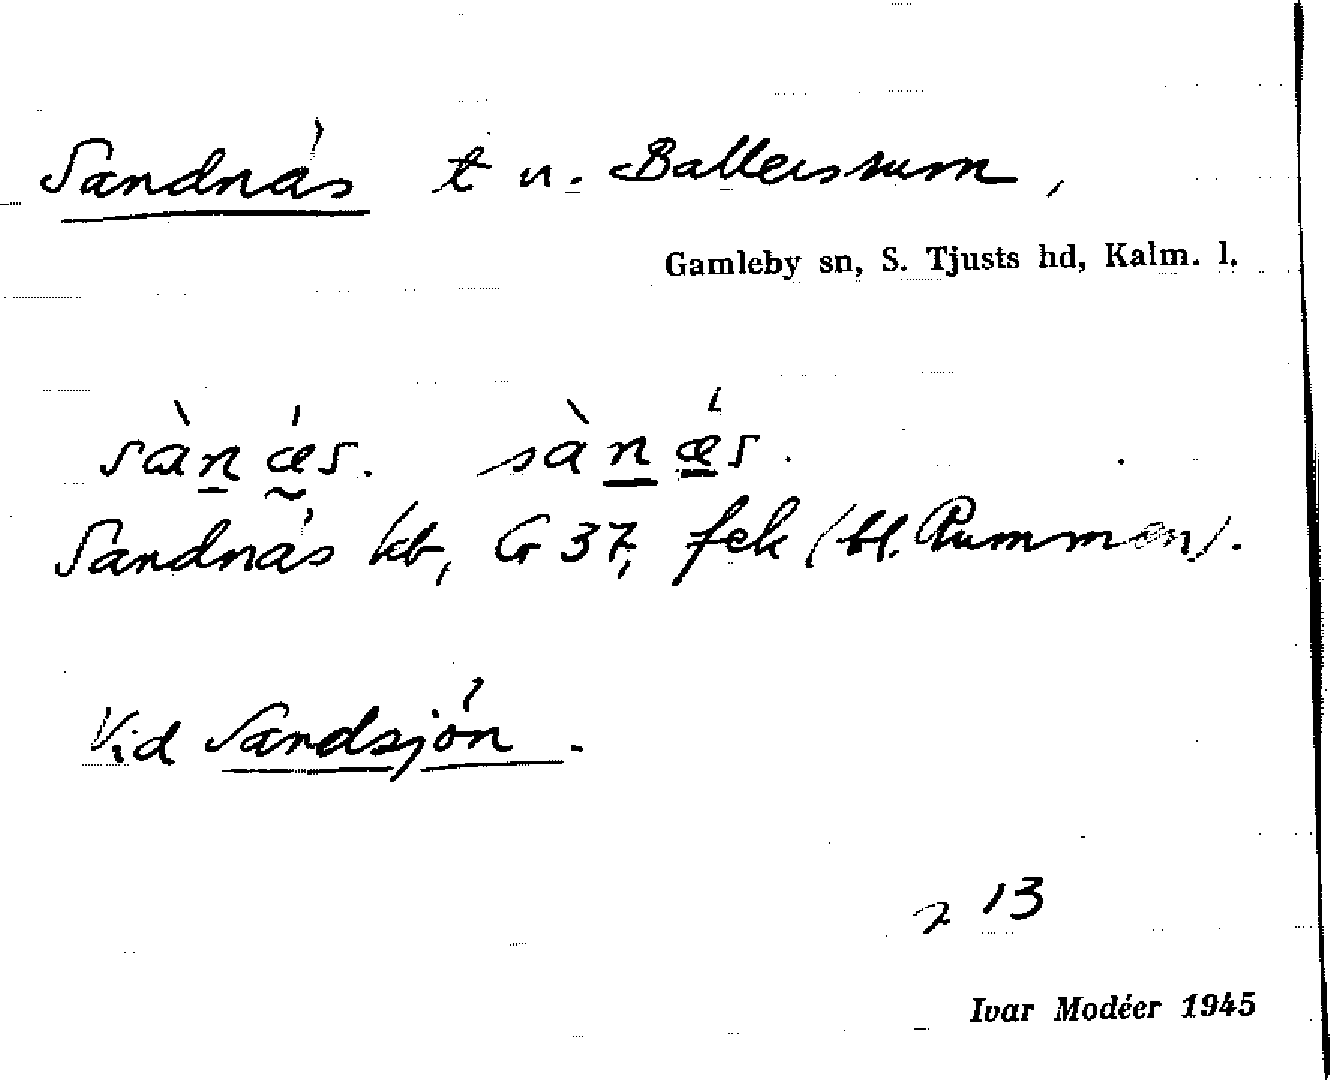 Sandnäs t u. Ballersrum,
Gamleby sn, S. Tjusts hd, Kalm. l.
sànǽs. sànǽs.
Sandnäs kb, G 37, fek (bl. Rummen).
Vid Sandsjön.
13
Ivar Modéer 1945